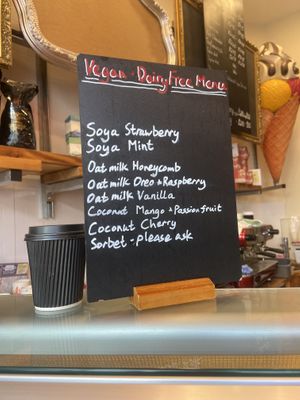 Vegan + Dairy Free Menu
Soya Strawberry
Soya Mint
Oatmilk Honeycomb
Oatmilk Oreo + Raspberry
Oatmilk Vanilla
Coconut Mango + Passion fruit
Coconut Cherry
Sorbet - please ask